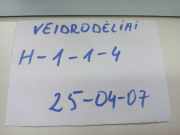 VEIDRODĖLIAI
H-1-1-4
25-04-07